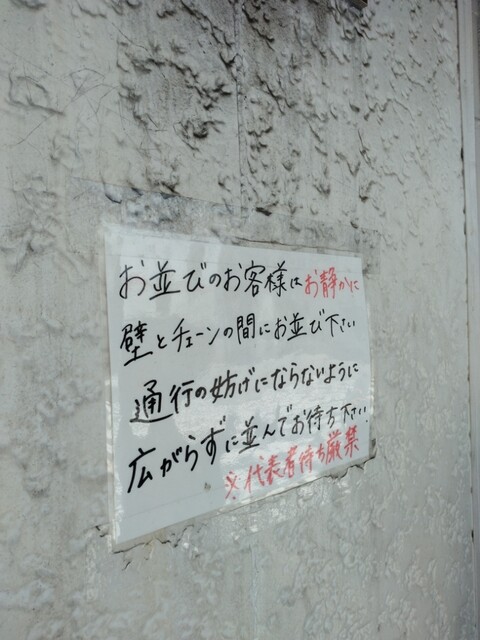 お並びのお客様はお静かに
壁とチェーンの間にお並び下さい
通行の妨げにならないように
広がらずに並んでお待ち下さい
※代表者待ち厳禁